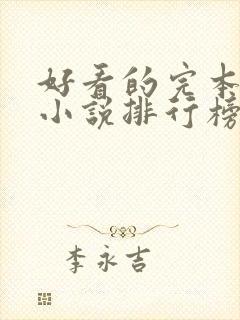 好看的完本
小说排行榜
李永吉